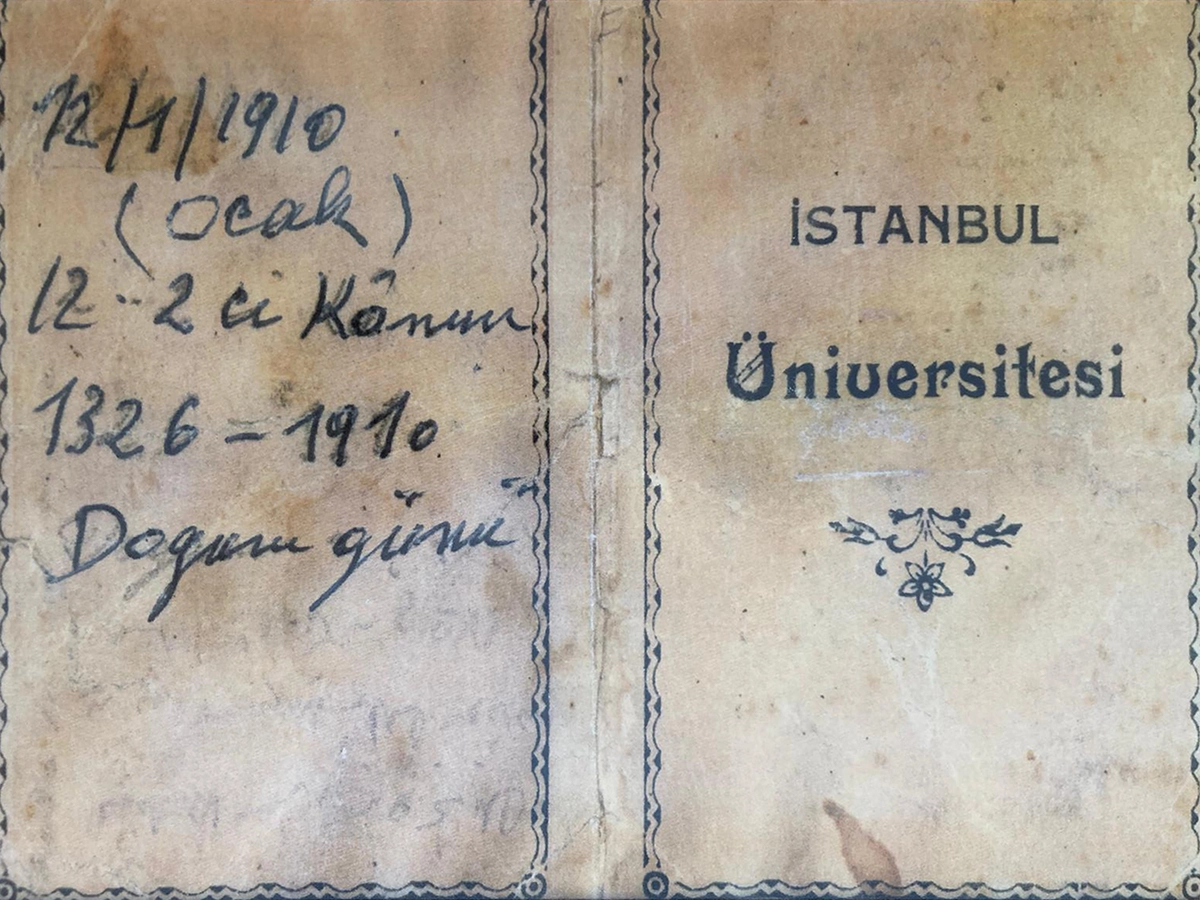 12/1/1910
(Ocak)
12 - 2 ci Kânun
1326 = 1910
Doğum günü
İSTANBUL
Üniversitesi